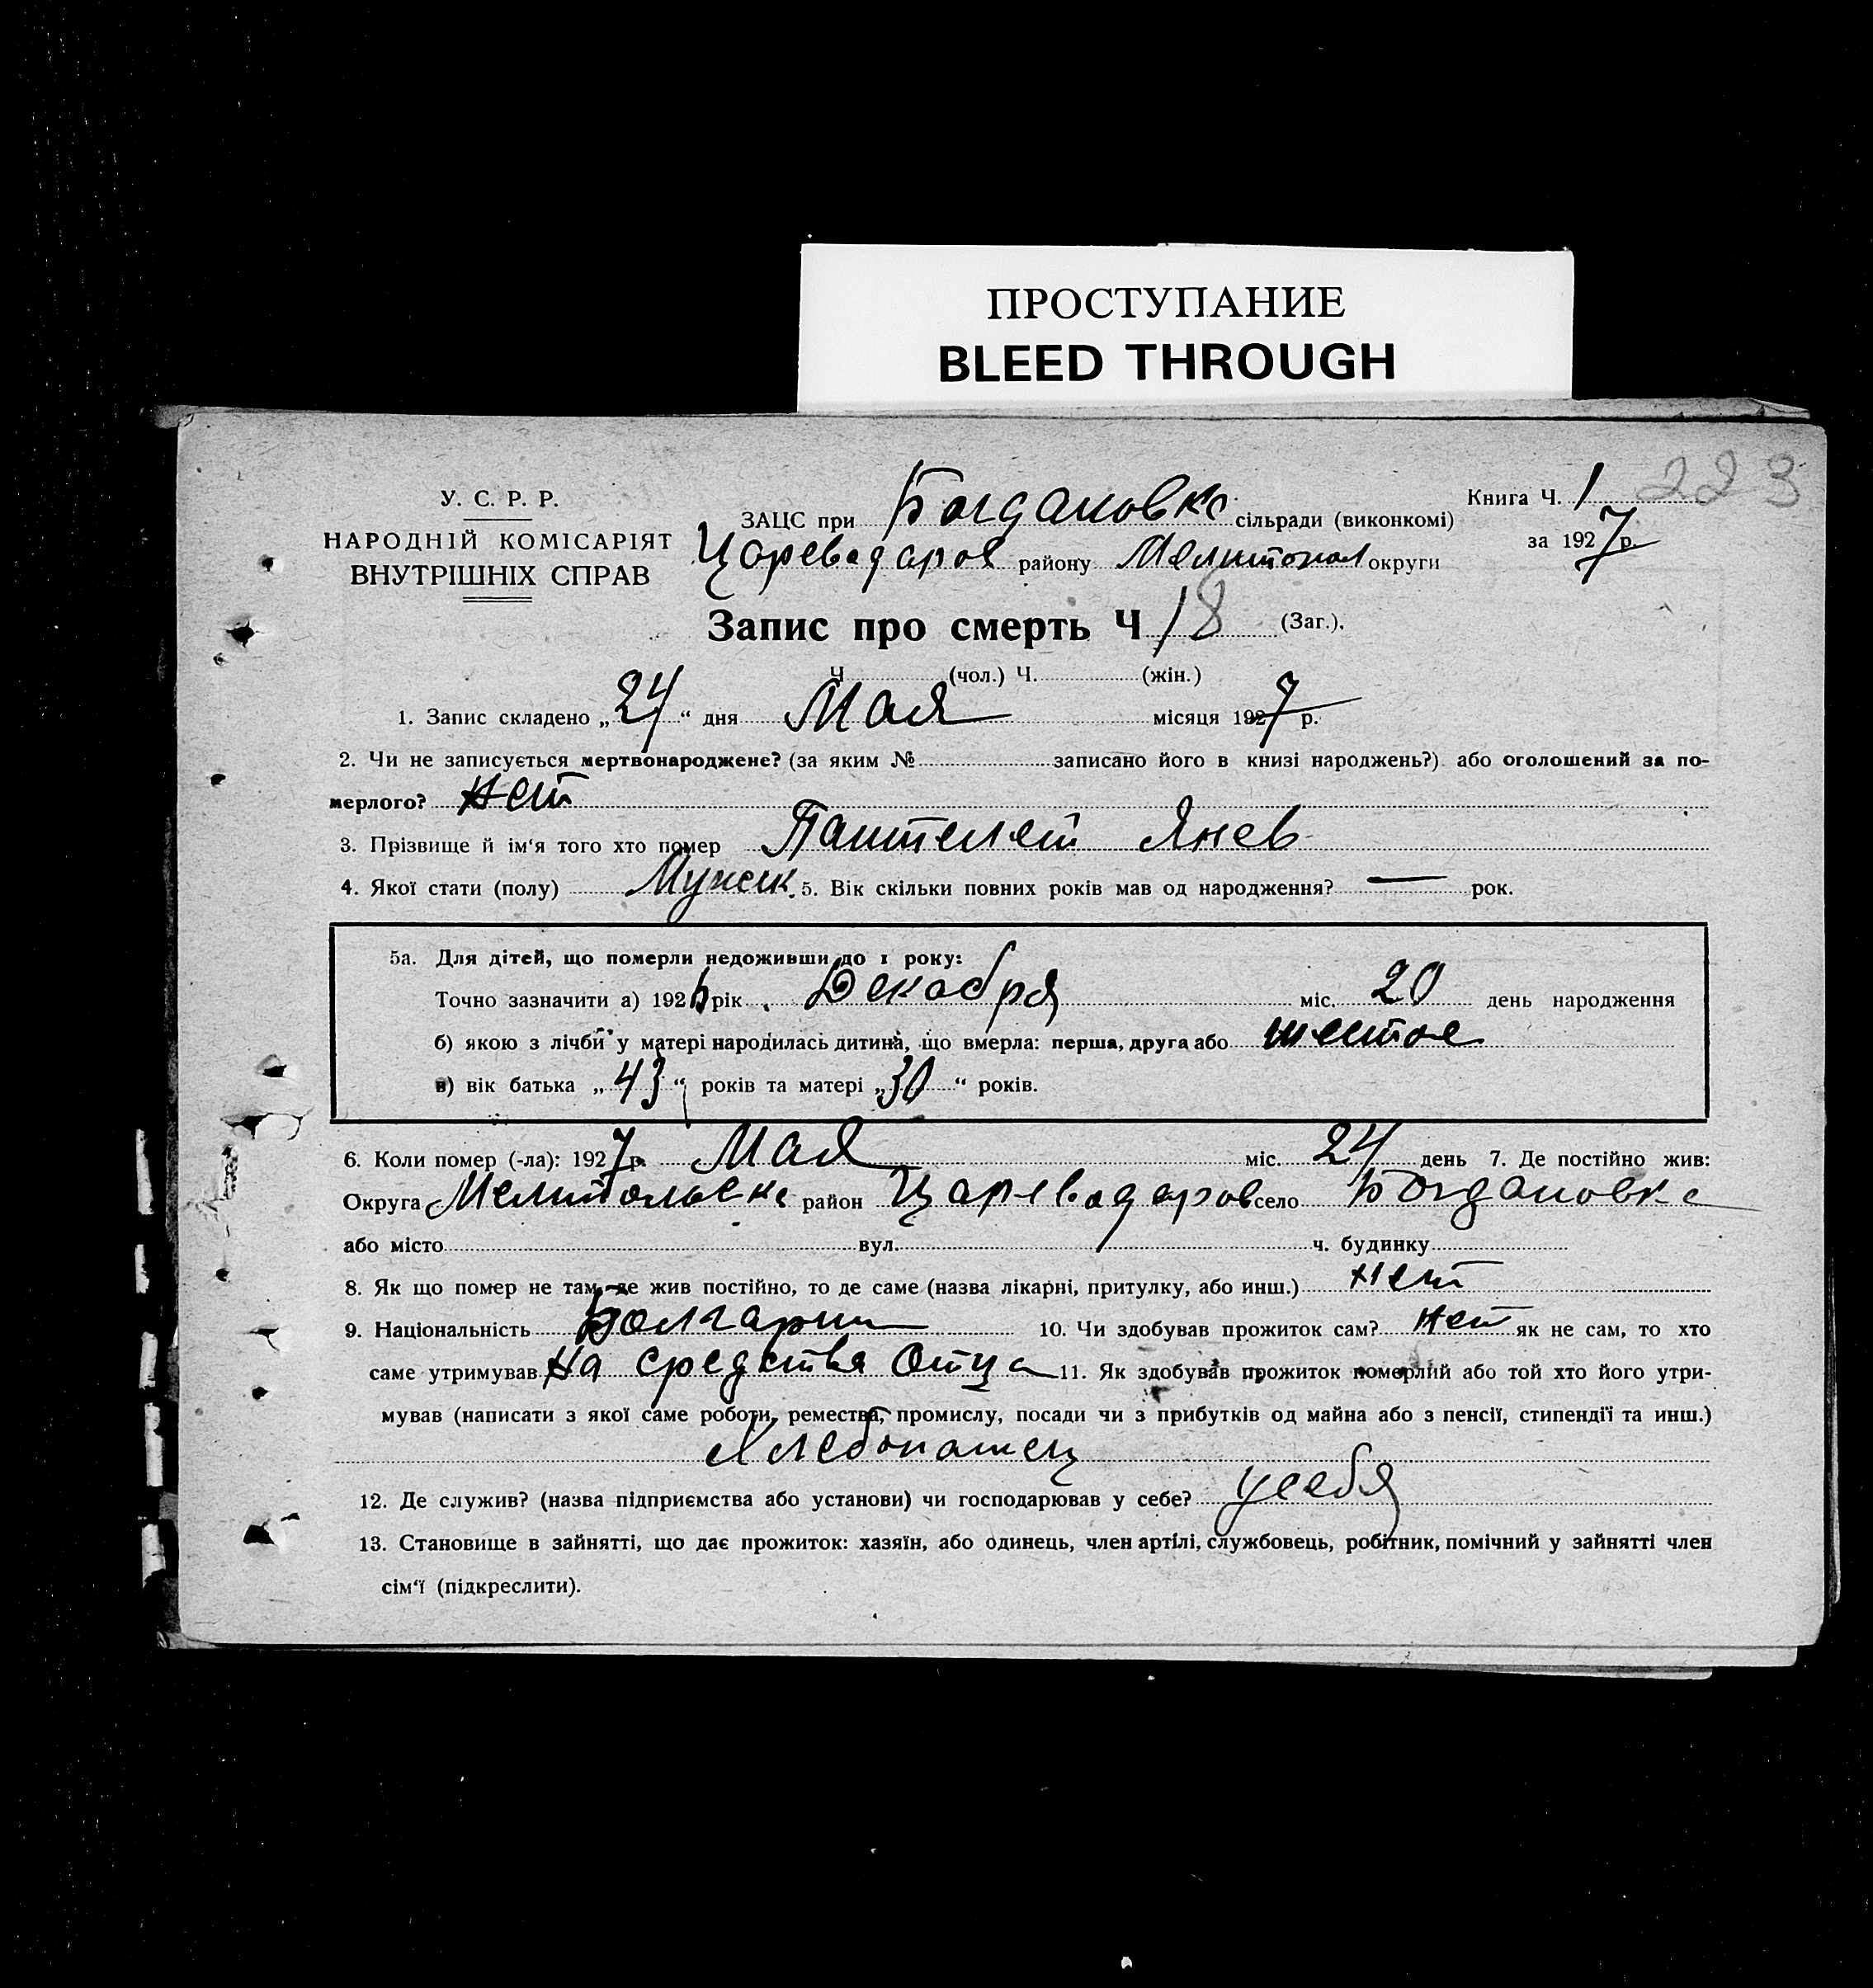 ПРОСТУПАНИЕ
BLEED THROUGH
223
У. С. Р. Р.
НАРОДНІЙ КОМІСАРІЯТ
ВНУТРІШНІХ СПРАВ
Книга Ч. 1
за 1927 р.
ЗАЦС при Богдановка сільради (виконкомі)
Цареводаров району Мелитопол округи
Запис про смерть Ч 18 (Заг.).
Ч. (чол.) Ч. (жін.)
1. Запис складено „24“ дня Мая місяця 1927 р.
2. Чи не записується мертвонароджене? (за яким № записано його в книзі народжень?) або оголошений за по-
мерлого? нет
3. Прізвище й ім‘я того хто помер Пантелей Янев
4. Якої стати (полу) Мужск. 5. Вік скільки повних років мав од народження? — рок.
5а. Для дітей, що померли недоживши до 1 року:
Точно зазначити а) 1926 рік Декабря міс. 20 день народження
б) якою з лічби у матері народилась дитина, що вмерла: перша, друга або шестое
в) вік батька „43“ років та матері „30“ років.
6. Коли помер (-ла): 1927 р. Мая міс. 24 день 7. Де постійно жив:
Округа Мелитольска район Цареводаров село Богдановка
або місто вул. ч. будинку
8. Як що помер не там, де жив постійно, то де саме (назва лікарні, притулку, або инш.) нет
9. Національність Болгарин 10. Чи здобував прожиток сам? нет як не сам, то хто
саме утримував на средства отца 11. Як здобував прожиток померлий або той хто його утри-
мував (написати з якої саме роботи, ремества, промислу, посади чи з прибутків од майна або з пенсії, стипендії та инш.)
Хлебопашец
12. Де служив? (назва підприємства або установи) чи господарював у себе? у себя
13. Становище в зайнятті, що дає прожиток: хазяїн, або одинець, член артілі, службовець, робітник, помічний у зайнятті член
сім‘ї (підкреслити).